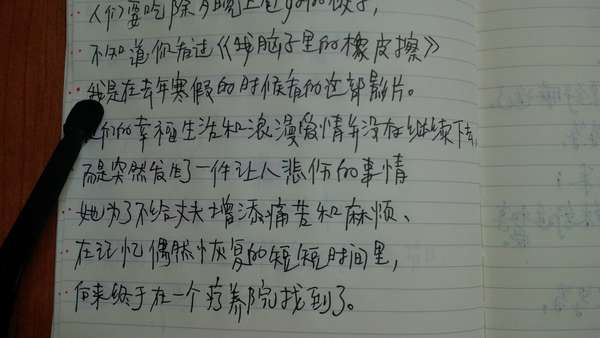 人们要吃除夕晚上包好的饺子，
不知道你看过《我脑子里的橡皮擦》
我是在去年寒假的时候看的这部影片。
们的幸福生活和浪漫爱情并没有继续下去，
而是突然发生了一件让人悲伤的事情
她为了不给丈夫增添痛苦和麻烦、
在记忆偶然恢复的短短时间里，
后来终于在一个疗养院找到了。